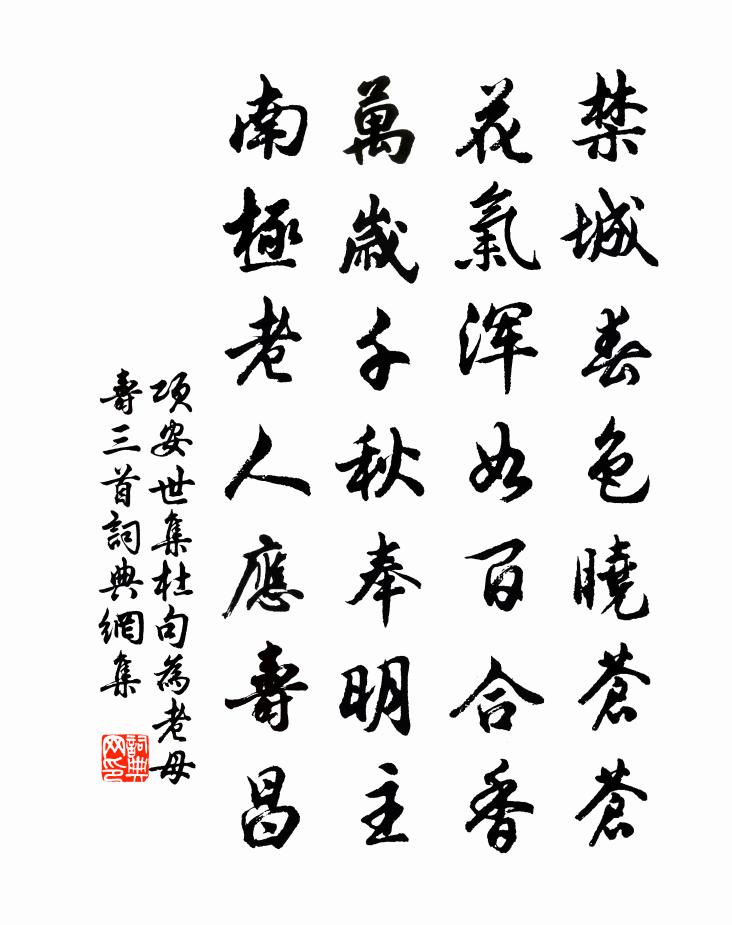 禁城春色曉蒼蒼
花氣渾如百合香
萬歲千秋奉明主
南極老人應壽昌
項安世集杜句為老母
壽三首詞典網集
詞典網印